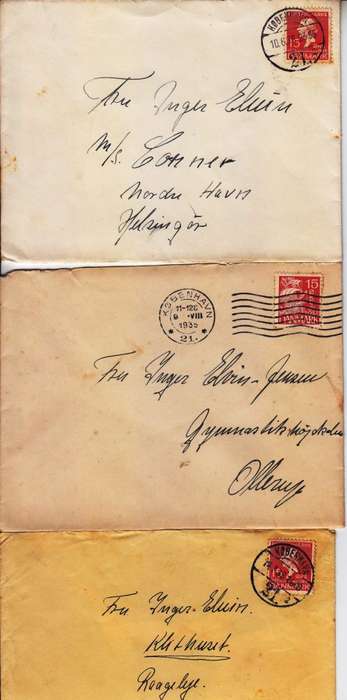 KØBENHAVN
10.6
15
DANMARK
Fru Inger Elvin
M/S. Conner
Nordre Havn
Helsingør
KØBENHAVN
11-12E
9 -VIII
1935
* 21. *
15
DANMARK
Fru Inger Elvin-Jensen
Gymnastikhøjskolen
Ollerup
KØBENHAVN
15
Fru Inger-Elvin.
Klithuset.
Raageleje.